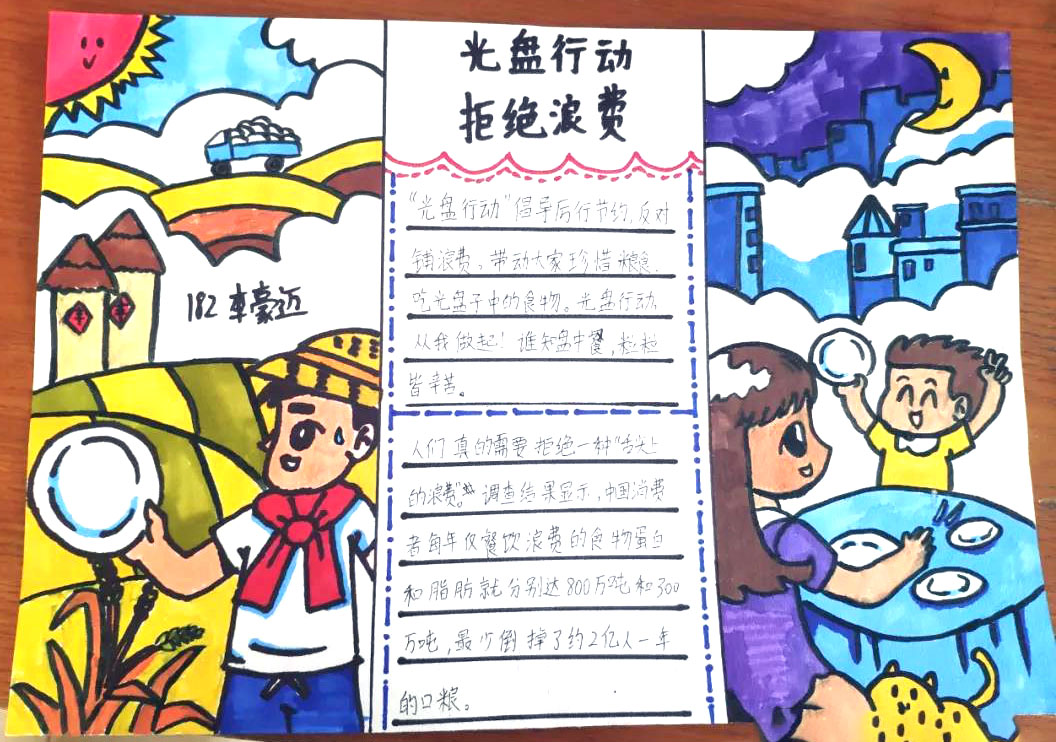 光盘行动
拒绝浪费
182 车豪迈
"光盘行动"倡导厉行节约,反对
铺浪费。带动大家珍惜粮食.
吃光盘子中的食物。光盘行动
从我做起!谁知盘中餐,粒粒
皆辛苦。
人们真的需要拒绝一种"舌尖上
的浪费"。调查结果显示,中国消费
者每年仅餐饮浪费的食物蛋白
和脂肪就分别达800万吨和300
万吨,最少倒掉了约2亿人一年
的口粮。
丰
丰